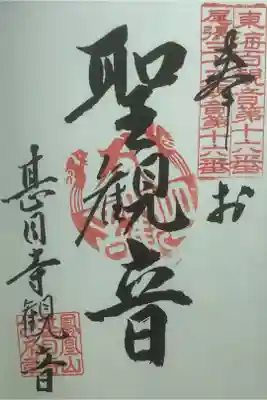 東海百観音第十六番
尾張三十三観音第十六番
奉
お
聖観音
甚目寺観音
鳳凰山